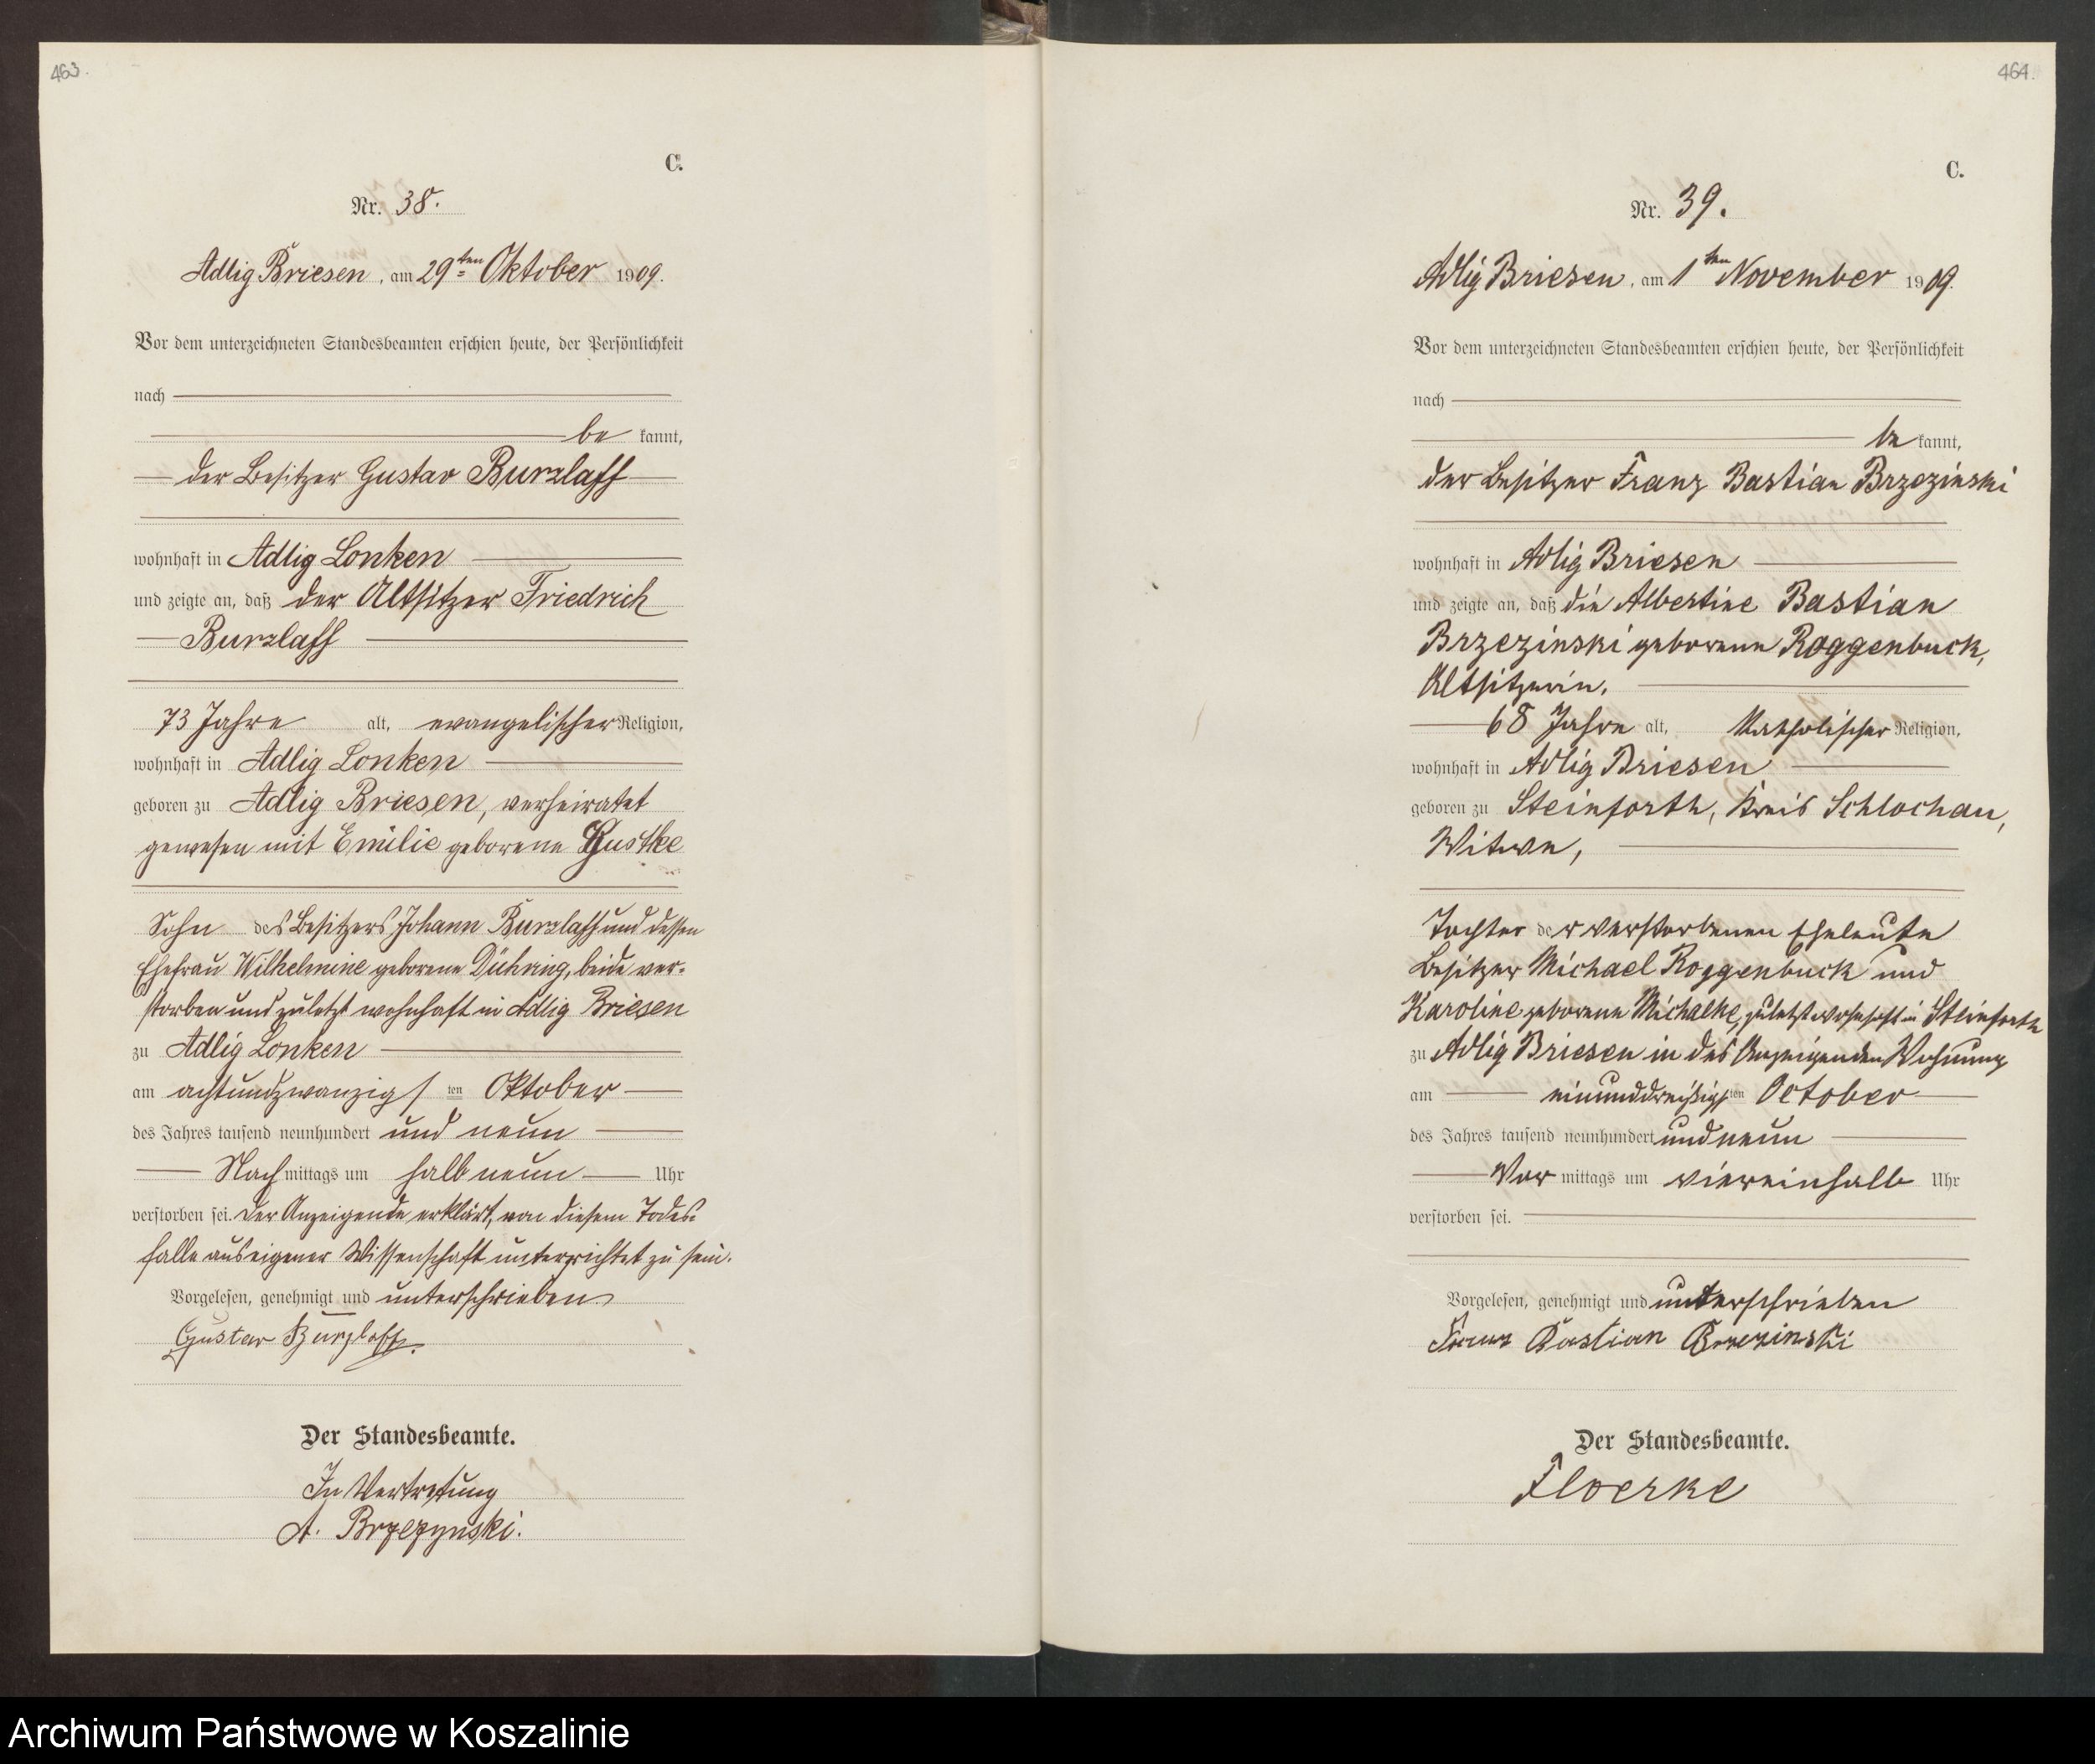 463.
C.
Nr. 38.
Adlig Briesen, am 29ten Oktober 1909.
Vor dem unterzeichneten Standesbeamten erschien heute, der Persönlichkeit
nach
be kannt,
der Besitzer Gustav Burzlaff
wohnhaft in Adlig Lonken
und zeigte an, daß der Altsitzer Friedrich
Burzlaff
73 Jahre alt, evangelischer Religion,
wohnhaft in Adlig Lonken
geboren zu Adlig Briesen, verheiratet
gewesen mit Emilie geborene Gustke
Sohn des Besitzers Johann Burzlaff und dessen
Ehefrau Wilhelmine geborene Dühring, beide ver-
storben und zuletzt wohnhaft in Adlig Briesen
zu Adlig Lonken
am achtundzwanzigsten Oktober
des Jahres tausend neunhundert und neun
Nach mittags um halb neun Uhr
verstorben sei. Der Anzeigende erklärt, von diesem Todes-
falle aus eigener Wissenschaft unterrichtet zu sein.
Vorgelesen, genehmigt und unterschrieben
Gustav Burzlaff.
Der Standesbeamte.
In Vertretung
A. Brzezynski.
464.
C.
Nr. 39.
Adlig Briesen, am 1ten November 1909.
Vor dem unterzeichneten Standesbeamten erschien heute, der Persönlichkeit
nach
be kannt,
der Besitzer Franz Bastian Brzezinski
wohnhaft in Adlig Briesen
und zeigte an, daß die Albertine Bastian
Brzezinski geborene Roggenbuck,
Altsitzerin,
68 Jahre alt, katholischer Religion,
wohnhaft in Adlig Briesen
geboren zu Steinforth, Kreis Schlochau,
Witwe,
Tochter der verstorbenen Eheleute
Besitzer Michael Roggenbuck und
Karoline geborene Michalke, zuletzt wohnhaft in Steinforth
zu Adlig Briesen in des Anzeigenden Wohnung
am einunddreißigsten October
des Jahres tausend neunhundert und neun
Vor mittags um viereinhalb Uhr
verstorben sei.
Vorgelesen, genehmigt und unterschrieben
Franz Bastian Brzezinski
Der Standesbeamte.
Floerke
Archiwum Państwowe w Koszalinie